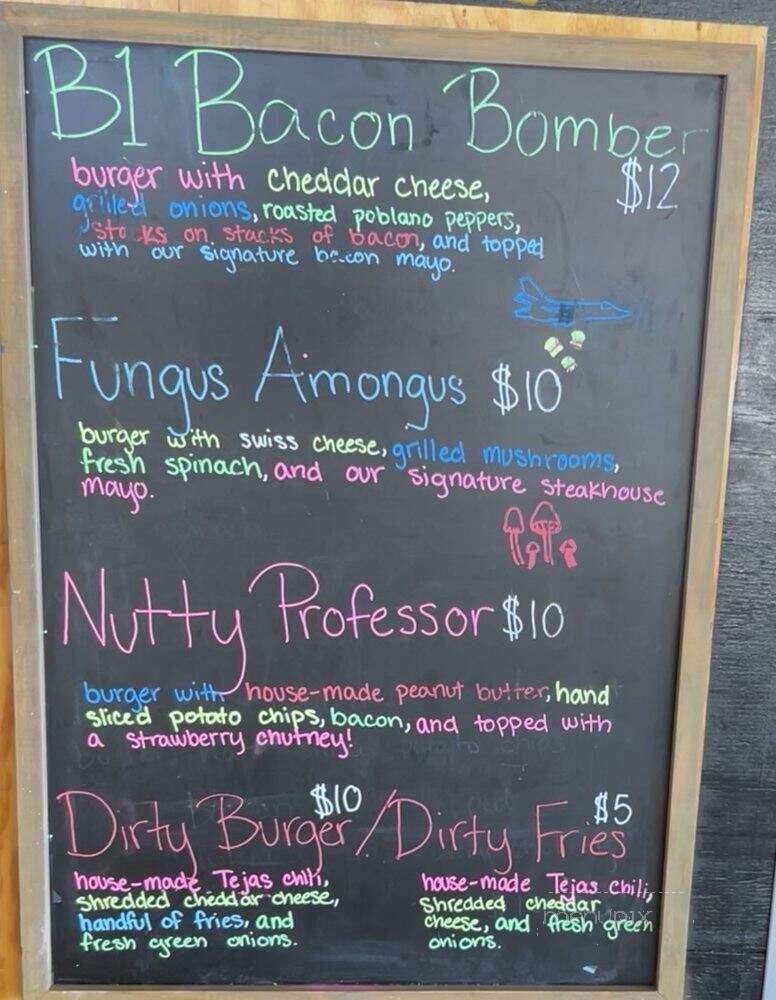 B1 Bacon Bomber
$12
burger with cheddar cheese,
grilled onions, roasted poblano peppers,
stacks on stacks of bacon, and topped
with our signature bacon mayo.
Fungus Amongus $10
burger with swiss cheese, grilled mushrooms,
fresh spinach, and our signature steakhouse
mayo.
Nutty Professor $10
burger with house-made peanut butter, hand
sliced potato chips, bacon, and topped with
a strawberry chutney!
$10 $5
Dirty Burger/Dirty Fries
house-made Tejas chili,
shredded cheddar cheese,
handful of fries, and
fresh green onions.
house-made Tejas chili,
shredded cheddar
cheese, and fresh green
onions.
menupix